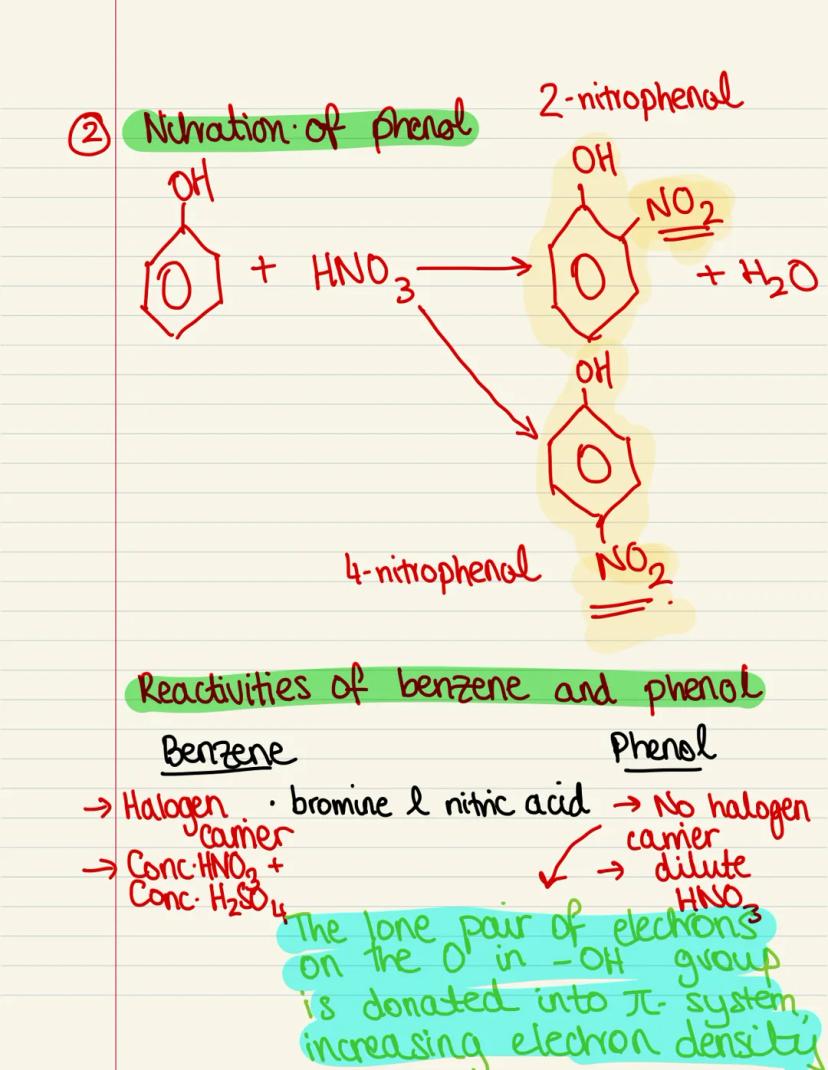 2-nitrophenol
② Nitration of phenol
OH
OH
NO2
+ HNO3
+ H2O
OH
4-nitrophenol
NO2
Reactivities of benzene and phenol
Benzene
Phenol
→ Halogen carrier
· bromine & nitric acid
→ No halogen carrier
→ Conc. HNO3 +
Conc. H2SO4
→ dilute
HNO3
The lone pair of electrons
on the O in -OH group
is donated into π-system,
increasing electron density